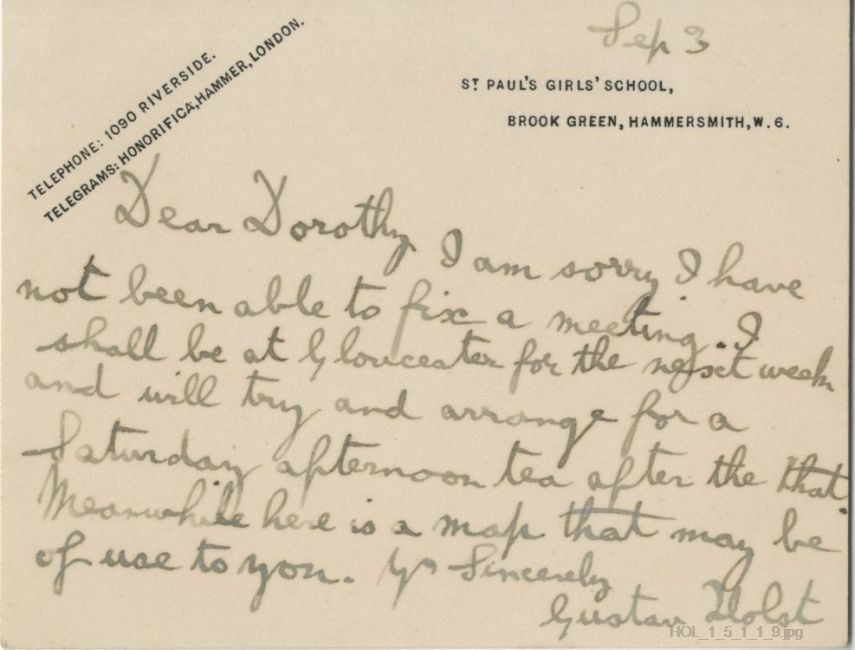 Sep 3
TELEPHONE: 1090 RIVERSIDE.
TELEGRAMS: HONORIFICA, HAMMER, LONDON.
ST PAUL'S GIRLS' SCHOOL,
BROOK GREEN, HAMMERSMITH, W. 6.
Dear Dorothy I am sorry I have
not been able to fix a meeting. I
shall be at Gloucester for the next week
and will try and arrange for a
Saturday afternoon tea after the that.
Meanwhile here is a map that may be
of use to you. Yrs Sincerely
Gustav Holst
HOL_1_5_1_1_9.jpg